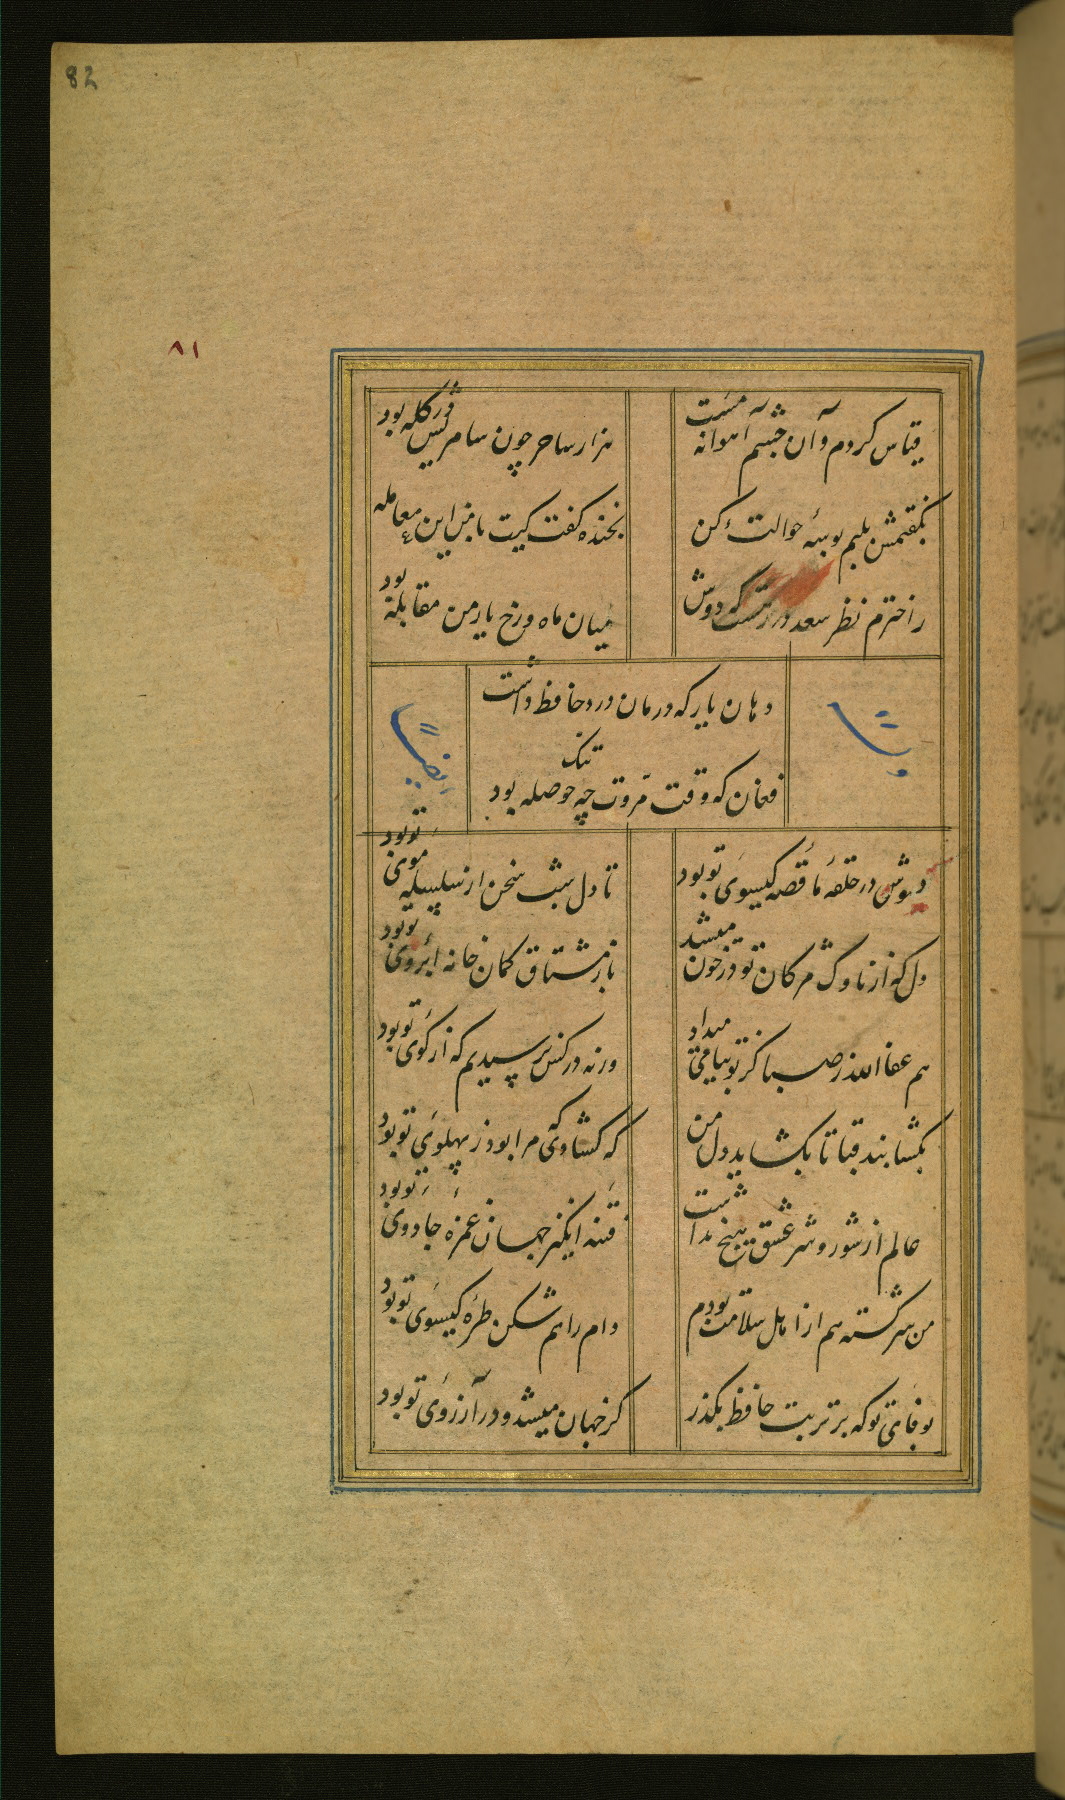 82
۸۱
قیاس کردم و آن چشم آهوانه مست
هزار ساحر چون سامریش در گله بود
بگفتمش بلبم بوسهٔ حوالت کن
بخنده گفت کیت با من این معامله بود
ز اخترم نظر سعد در رهست که دوش
میان ماه و رخ یار من مقابله بود
دهان یار که درمان درد حافظ داشت
فغان که وقت مروت چه تنک حوصله بود
وله
ایضاً
دوش در حلقهٔ ما قصه کیسوی تو بود
تا دل شب سخن از سلسله موی تو بود
دل که از ناوک مژکان تو در خون میشد
باز مشتاق کمان خانه ابروی تو بود
هم عفا الله ز صبا کز تو پیامی میداد
ورنه در کس نرسیدیم که از کوی تو بود
بکشا بند قبا تا بکشاید دل من
که کشادی که مرا بود ز پهلوی تو بود
عالم از شور و شر عشق هیچ نداشت
فتنه انکیز جهان غمزه جادوی تو بود
من سرکشته هم از اهل سلامت بودم
دام راهم شکن طره کیسوی تو بود
بوفای تو که بر تربت حافظ بکذر
کز جهان میشد و در آرزوی تو بود